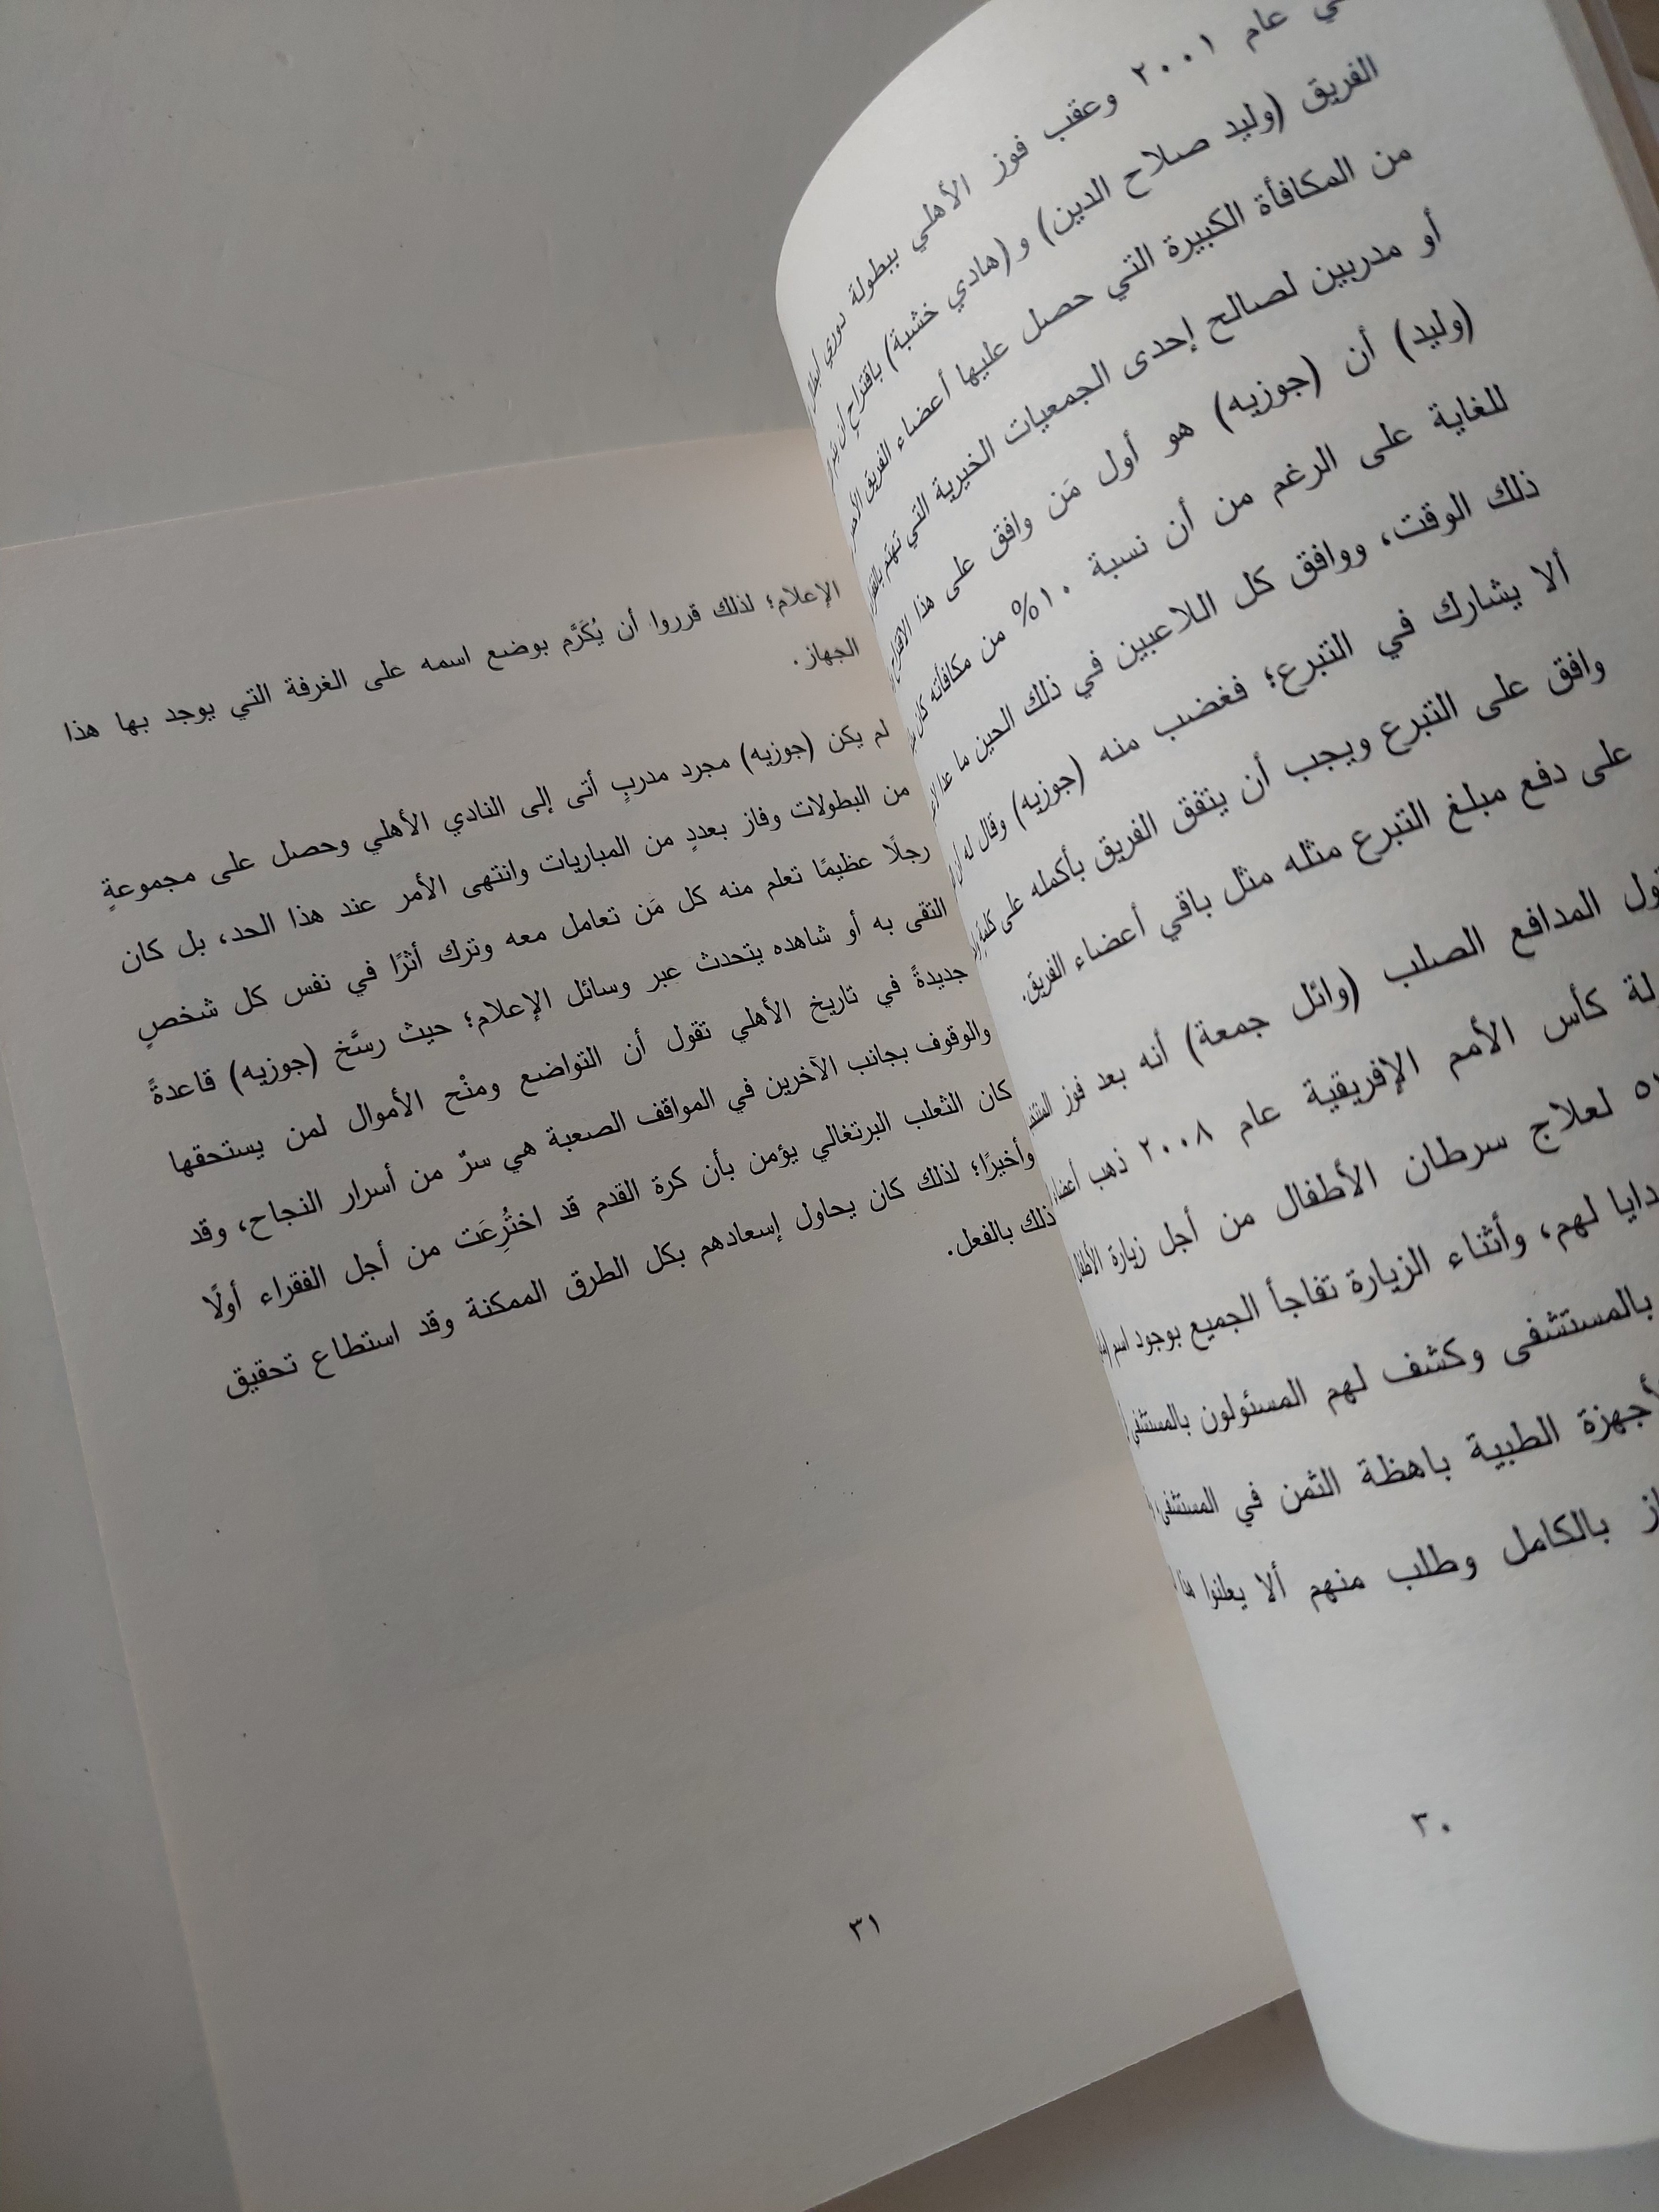 عام ٢٠٠١ وعقب فوز الأهلي ببطولة دوري
الفريق (وليد صلاح الدين) و(هادي خشبة) باقتراح
من المكافأة الكبيرة التي حصل عليها أعضاء الفريق
أو مدربين لصالح إحدى الجمعيات الخيرية التي تهتم
(وليد) أن (جوزيه) هو أول مَن وافق على هذا الاقتراح
للغاية على الرغم من أن نسبة ١٠% من مكافأته كان
ذلك الوقت، ووافق كل اللاعبين في ذلك الحين ما عدا
ألا يشارك في التبرع؛ فغضب منه (جوزيه) وقال له
وافق على التبرع ويجب أن يتفق الفريق بأكمله على كلمة
على دفع مبلغ التبرع مثله مثل باقي أعضاء الفريق.
المدافع الصلب (وائل جمعة) أنه بعد فوز
كأس الأمم الإفريقية عام ٢٠٠٨ ذهب
لعلاج سرطان الأطفال من أجل زيارة
لهم، وأثناء الزيارة تفاجأ الجميع بوجود اسم
بالمستشفى وكشف لهم المسئولون بالمستشفى
الطبية باهظة الثمن في المستشفى
بالكامل وطلب منهم ألا يعلنوا
٣٠
الإعلام؛ لذلك قرروا أن يُكَرَّم بوضع اسمه على الغرفة التي يوجد بها هذا
الجهاز.
لم يكن (جوزيه) مجرد مدربٍ أتى إلى النادي الأهلي وحصل على مجموعةٍ
من البطولات وفاز بعددٍ من المباريات وانتهى الأمر عند هذا الحد، بل كان
رجلًا عظيمًا تعلم منه كل مَن تعامل معه وترك أثرًا في نفس كل شخصٍ
التقى به أو شاهده يتحدث عبر وسائل الإعلام؛ حيث رسَّخ (جوزيه) قاعدةً
جديدةً في تاريخ الأهلي تقول أن التواضع ومنْح الأموال لمن يستحقها
والوقوف بجانب الآخرين في المواقف الصعبة هي سرٌ من أسرار النجاح، وقد
كان الثعلب البرتغالي يؤمن بأن كرة القدم قد اختُرِعَت من أجل الفقراء أولًا
وأخيرًا؛ لذلك كان يحاول إسعادهم بكل الطرق الممكنة وقد استطاع تحقيق
ذلك بالفعل.
٣١